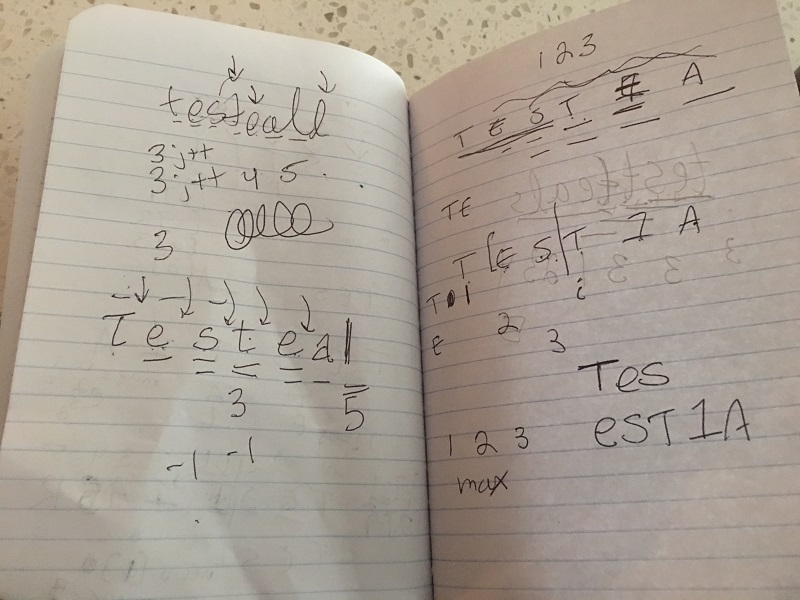 testeall
3 j++
3 j++ 4 5
3
Testeal
3 5
-1 -1
123
T E S T E A
TE
T [E S | T 1 A
T 1
i
E 2 3
Tes
1 2 3 EST1A
max